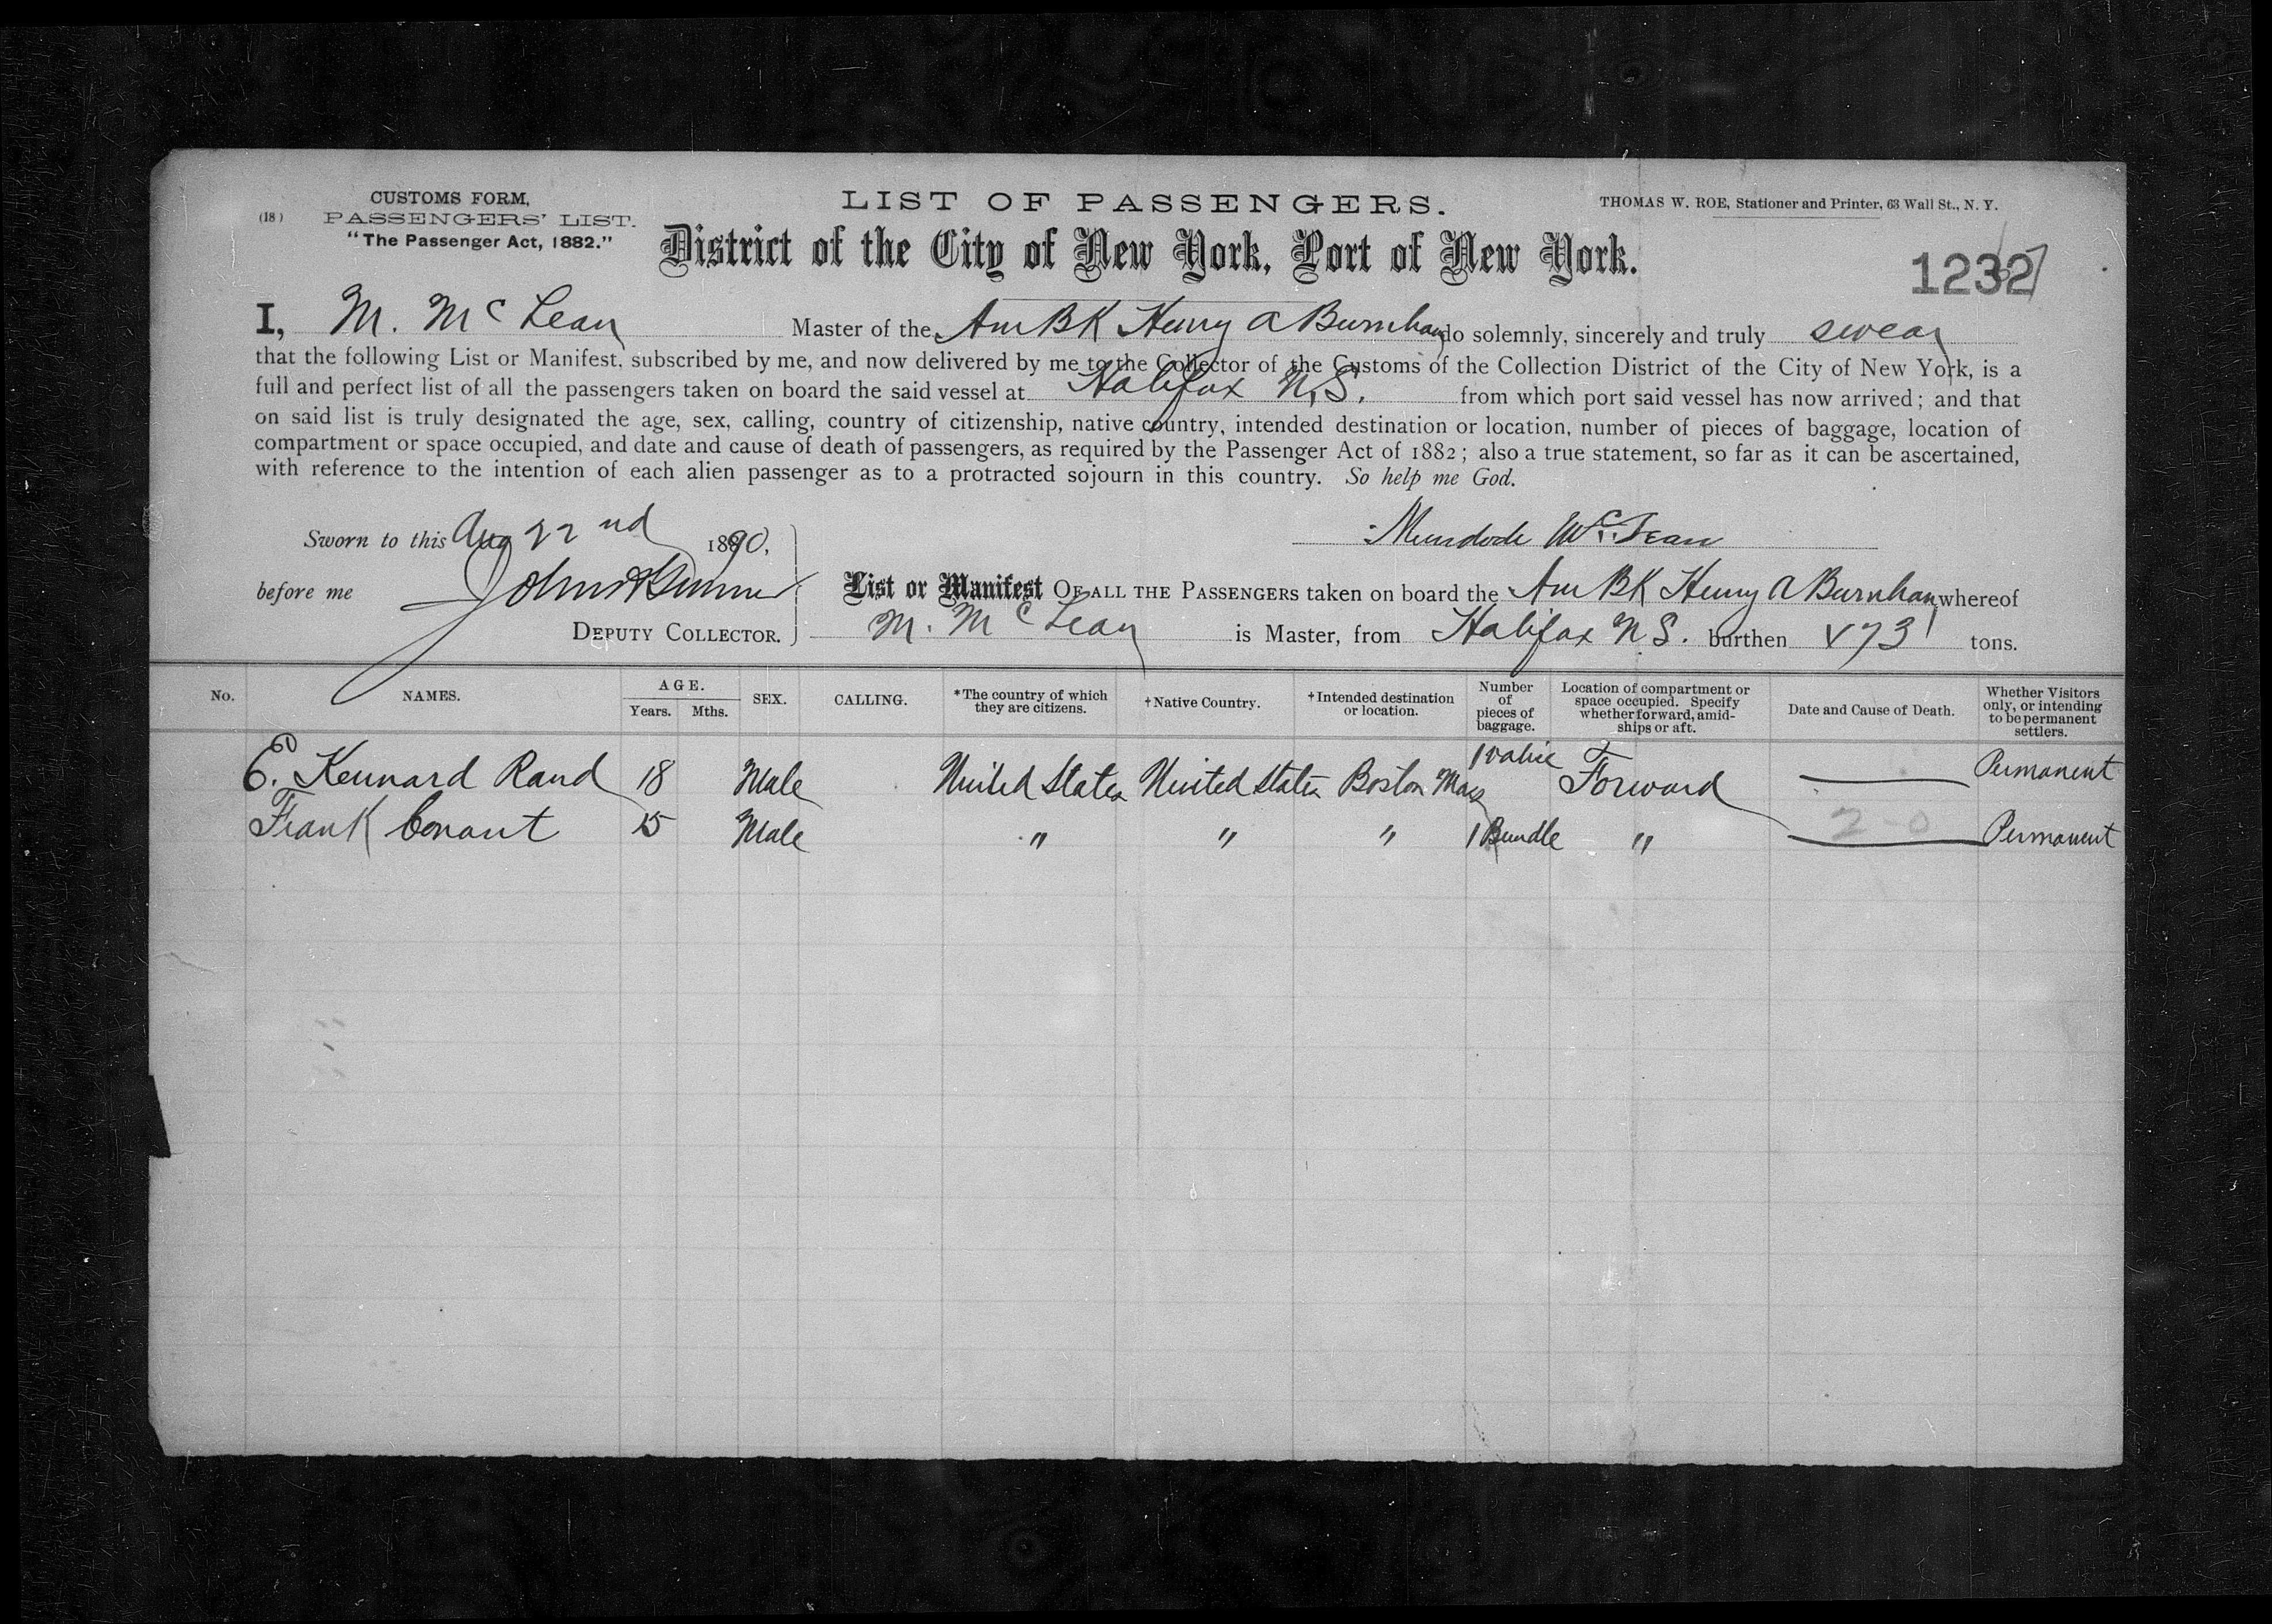 CUSTOMS FORM,
(18) PASSENGERS' LIST.
"The Passenger Act, 1882."
LIST OF PASSENGERS.
THOMAS W. ROE, Stationer and Printer, 63 Wall St., N. Y.
District of the City of New York, Port of New York.
1232
I, M. McLean Master of the Am BK Henry A Burnham do solemnly, sincerely and truly swear
that the following List or Manifest, subscribed by me, and now delivered by me to the Collector of the Customs of the Collection District of the City of New York, is a
full and perfect list of all the passengers taken on board the said vessel at Halifax N.S. from which port said vessel has now arrived; and that
on said list is truly designated the age, sex, calling, country of citizenship, native country, intended destination or location, number of pieces of baggage, location of
compartment or space occupied, and date and cause of death of passengers, as required by the Passenger Act of 1882; also a true statement, so far as it can be ascertained,
with reference to the intention of each alien passenger as to a protracted sojourn in this country. So help me God.
Sworn to this Aug 22nd 1890,
McLean
before me
List or Manifest OF ALL THE PASSENGERS taken on board the Am BK Henry A Burnham whereof
DEPUTY COLLECTOR.
M. McLean is Master, from Halifax N.S. burthen 73 tons.
No. NAMES. AGE. Years. Mths. SEX. CALLING. *The country of which they are citizens. †Native Country. †Intended destination or location. Number of pieces of baggage. Location of compartment or space occupied. Specify whether forward, amidships or aft. Date and Cause of Death. Whether Visitors only, or intending to be permanent settlers.
E. Kennard Rand 18 Male United States United States Boston Mass 1 valise Forward Permanent
Frank Conant 15 Male " " " 1 Bundle " 2-0 Permanent